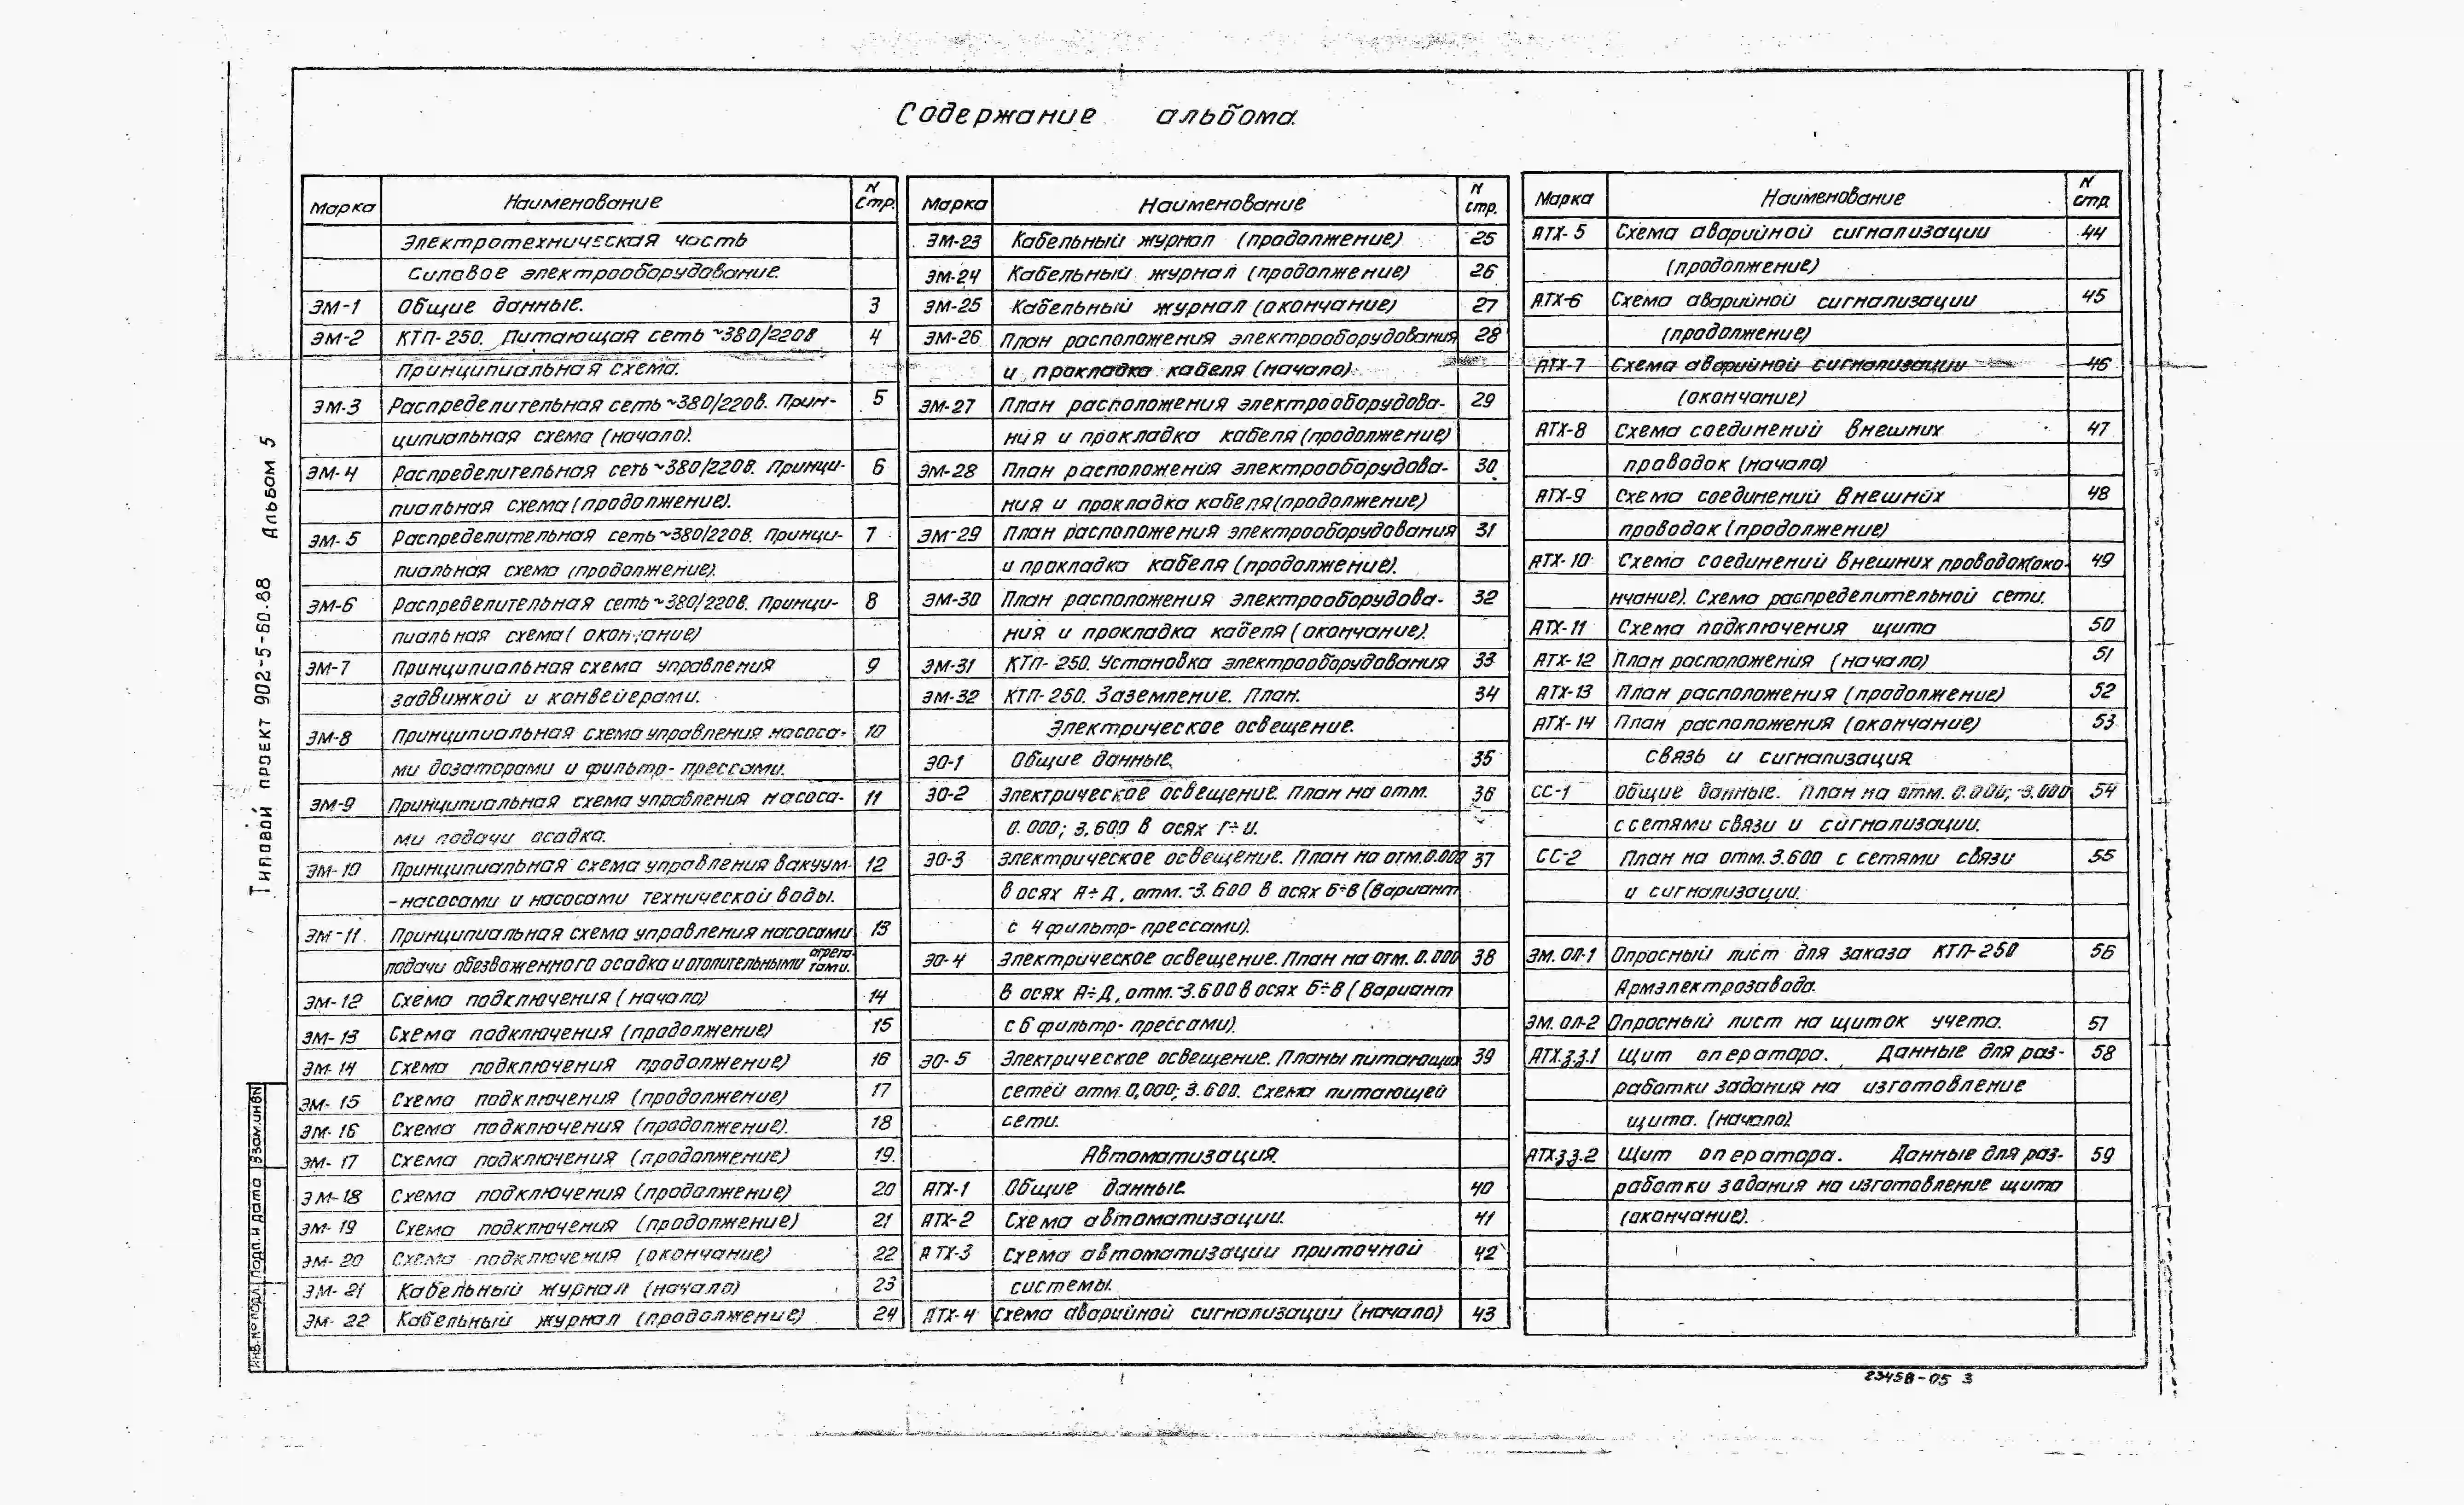 Содержание альбома.
Марка Наименование N стр.
Электротехническая часть
Силовое электрооборудование.
ЭМ-1 Общие данные. 3
ЭМ-2 КТП-250. Питающая сеть ~380/220В 4
Принципиальная схема.
ЭМ-3 Распределительная сеть ~380/220В. Прин- 5
ципиальная схема (начало).
ЭМ-4 Распределительная сеть ~380/220В. Принци- 6
пиальная схема (продолжение).
ЭМ-5 Распределительная сеть ~380/220В. Принци- 7
пиальная схема (продолжение).
ЭМ-6 Распределительная сеть ~380/220В. Принци- 8
пиальная схема (окончание)
ЭМ-7 Принципиальная схема управления 9
задвижкой и конвейерами.
ЭМ-8 Принципиальная схема управления насоса- 10
ми дозаторами и фильтр-прессами.
ЭМ-9 Принципиальная схема управления насоса- 11
ми подачи осадка.
ЭМ-10 Принципиальная схема управления вакуум- 12
-насосами и насосами технической воды.
ЭМ-11 Принципиальная схема управления насосами 13
подачи обезвоженного осадка и отопительными агрега-
тами.
ЭМ-12 Схема подключения (начало) 14
ЭМ-13 Схема подключения (продолжение) 15
ЭМ-14 Схема подключения продолжение) 16
ЭМ-15 Схема подключения (продолжение) 17
ЭМ-16 Схема подключения (продолжение). 18
ЭМ-17 Схема подключения (продолжение) 19.
ЭМ-18 Схема подключения (продолжение) 20
ЭМ-19 Схема подключения (продолжение) 21
ЭМ-20 Схема подключения (окончание) 22
ЭМ-21 Кабельный журнал (начало) 23
ЭМ-22 Кабельный журнал (продолжение) 24
Марка Наименование N стр.
ЭМ-23 Кабельный журнал (продолжение) 25
ЭМ-24 Кабельный журнал (продолжение) 26
ЭМ-25 Кабельный журнал (окончание) 27
ЭМ-26 План расположения электрооборудования 28
и прокладка кабеля (начало)
ЭМ-27 План расположения электрооборудова- 29
ния и прокладка кабеля (продолжение)
ЭМ-28 План расположения электрооборудова- 30
ния и прокладка кабеля (продолжение)
ЭМ-29 План расположения электрооборудования 31
и прокладка кабеля (продолжение).
ЭМ-30 План расположения электрооборудова- 32
ния и прокладка кабеля (окончание).
ЭМ-31 КТП-250. Установка электрооборудования 33
ЭМ-32 КТП-250. Заземление. План. 34
Электрическое освещение.
ЭО-1 Общие данные. 35
ЭО-2 Электрическое освещение. План на отм. 36
0.000; 3.600 в осях Г÷И.
ЭО-3 Электрическое освещение. План на отм.0.000 37
в осях А÷Д, отм. -3.600 в осях Б÷В (вариант
с 4 фильтр-прессами).
ЭО-4 Электрическое освещение. План на отм. 0.000 38
в осях А÷Д, отм. -3.600 в осях Б÷В (вариант
с 6 фильтр-прессами).
ЭО-5 Электрическое освещение. Планы питающих 39
сетей отм. 0,000; 3.600. Схема питающей
сети.
Автоматизация.
АТХ-1 Общие данные 40
АТХ-2 Схема автоматизации. 41
АТХ-3 Схема автоматизации приточной 42
системы.
АТХ-4 Схема аварийной сигнализации (начало) 43
Марка Наименование N стр.
АТХ-5 Схема аварийной сигнализации 44
(продолжение)
АТХ-6 Схема аварийной сигнализации 45
(продолжение)
АТХ-7 Схема аварийной сигнализации 46
(окончание)
АТХ-8 Схема соединений внешних 47
проводок (начало)
АТХ-9 Схема соединений внешних 48
проводок (продолжение)
АТХ-10 Схема соединений внешних проводок(око- 49
нчание). Схема распределительной сети.
АТХ-11 Схема подключения щита 50
АТХ-12 План расположения (начало) 51
АТХ-13 План расположения (продолжение) 52
АТХ-14 План расположения (окончание) 53
Связь и сигнализация
СС-1 Общие данные. План на отм. 0.000; -3.000 54
с сетями связи и сигнализации.
СС-2 План на отм. 3.600 с сетями связи 55
и сигнализации.
ЭМ.ОЛ-1 Опросный лист для заказа КТП-250 56
Армэлектрозавода.
ЭМ.ОЛ-2 Опросный лист на щиток учета. 57
АТХ.ЗЗ.1 Щит оператора. Данные для раз- 58
работки задания на изготовление
щита. (начало).
АТХ.ЗЗ.2 Щит оператора. Данные для раз- 59
работки задания на изготовление щита
(окончание).
Типовой проект 902-5-50.88 Альбом 5
Инв.№ подл. Подп. и дата Взам.инв№
23458-05 3